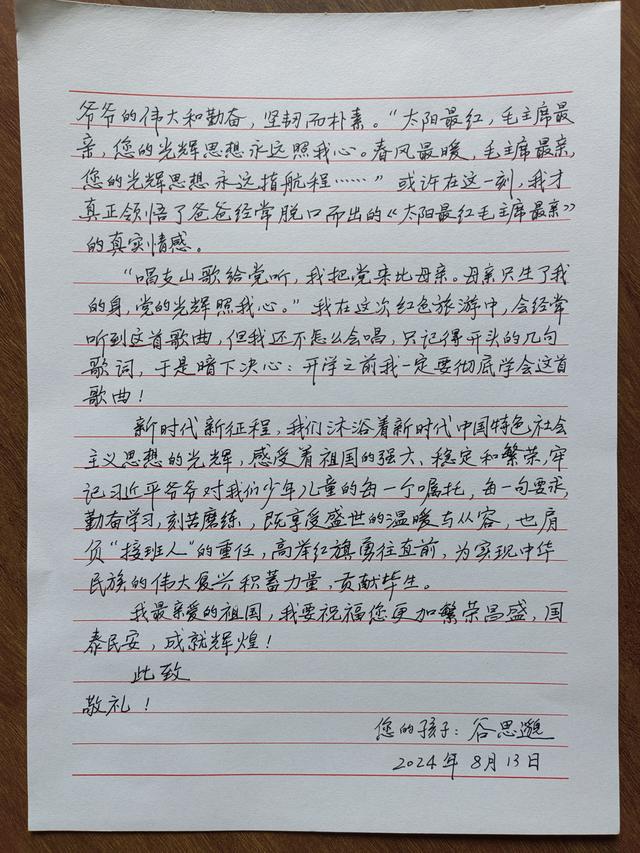 爷爷的伟大和勤奋，坚韧而朴素。“太阳最红，毛主席最
亲，您的光辉思想永远照我心。春风最暖，毛主席最亲，
您的光辉思想永远指航程……”或许在这一刻，我才
真正领悟了爸爸经常脱口而出的《太阳最红毛主席最亲》
的真实情感。
“唱支山歌给党听，我把党来比母亲。母亲只生了我
的身，党的光辉照我心。”我在这次红色旅游中，会经常
听到这首歌曲，但我还不怎么会唱，只记得开头的几句
歌词，于是暗下决心：开学之前我一定要彻底学会这首
歌曲！
新时代新征程，我们沐浴着新时代中国特色社会
主义思想的光辉，感受着祖国的强大、稳定和繁荣，牢
记习近平爷爷对我们少年儿童的每一个嘱托，每一句要求，
勤奋学习，刻苦磨练，既享受盛世的温暖与从容，也肩
负“接班人”的重任，高举红旗勇往直前，为实现中华
民族的伟大复兴积蓄力量，贡献毕生。
我最亲爱的祖国，我要祝福您更加繁荣昌盛，国
泰民安，成就辉煌！
此致
敬礼！
您的孩子：谷思邈
2024年8月13日